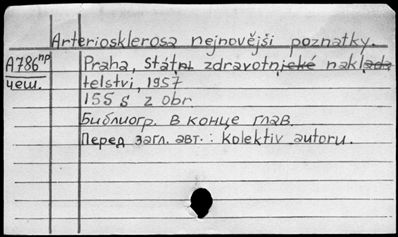 Arteriosklerosa nejnovější poznatky.
A786пр Praha, Státní zdravotnické naklada
чеш. telství, 1957
155 s z obr.
Библиогр. в конце глав.
Перед загл. авт.: kolektiv autoru.